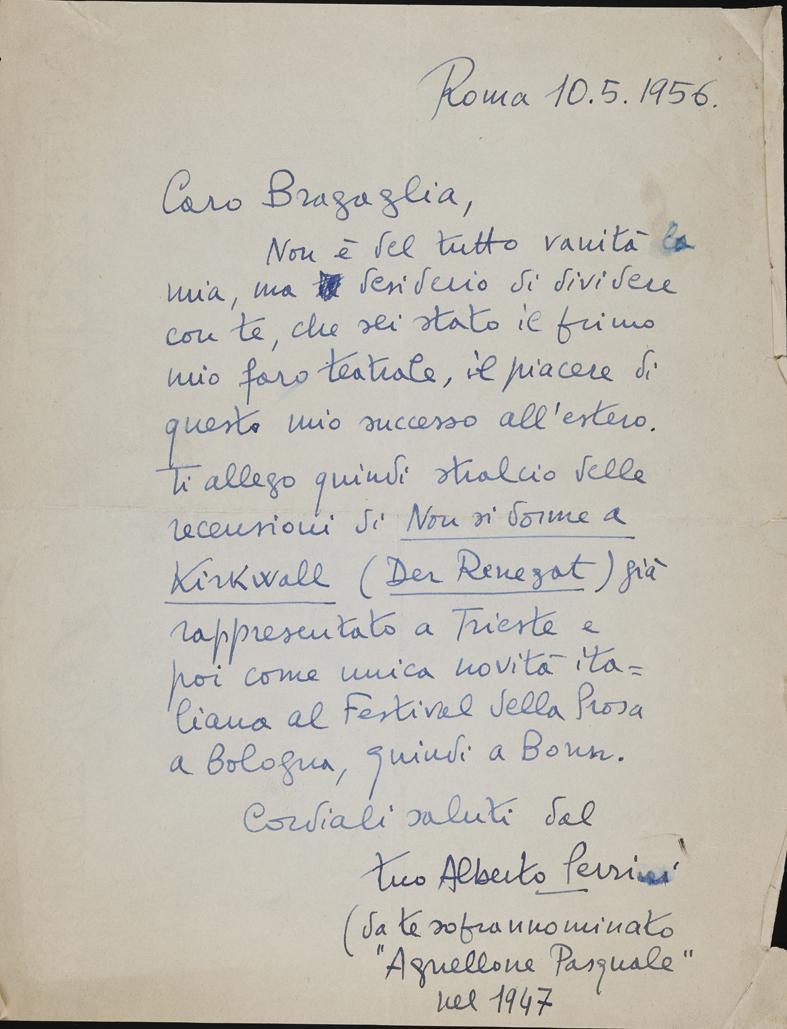 Roma 10.5.1956.
Caro Bragaglia,
Non è del tutto vanità la
mia, ma desiderio di dividere
con te, che sei stato il primo
mio faro teatrale, il piacere di
questo mio successo all'estero.
Ti allego quindi stralcio delle
recensioni di Non si dorme a
Kirkwall (Der Renegat) già
rappresentato a Trieste e
poi come unica novità ita=
liana al Festival della Prosa
a Bologna, quindi a Bonn.
Cordiali saluti dal
tuo Alberto Perrini
(da te soprannominato
"Agnellone Pasquale"
nel 1947